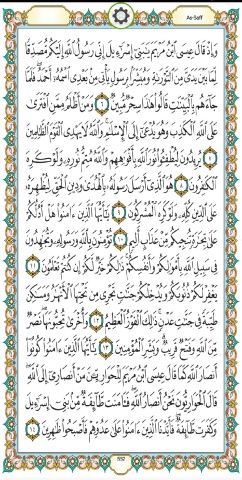 As-Saff
وَإِذْ قَالَ عِيسَى ابْنُ مَرْيَمَ يَٰبَنِىٓ إِسْرَٰٓءِيلَ إِنِّى رَسُولُ اللَّهِ إِلَيْكُم مُّصَدِّقًا
لِّمَا بَيْنَ يَدَىَّ مِنَ التَّوْرَىٰةِ وَمُبَشِّرًۢا بِرَسُولٍ يَأْتِى مِنۢ بَعْدِى اسْمُهُۥٓ أَحْمَدُ ۖ فَلَمَّا
جَآءَهُم بِالْبَيِّنَٰتِ قَالُوا۟ هَٰذَا سِحْرٌ مُّبِينٌ ٦ وَمَنْ أَظْلَمُ مِمَّنِ افْتَرَىٰ
عَلَى اللَّهِ الْكَذِبَ وَهُوَ يُدْعَىٰٓ إِلَى الْإِسْلَٰمِ ۚ وَاللَّهُ لَا يَهْدِى الْقَوْمَ الظَّٰلِمِينَ
٧ يُرِيدُونَ لِيُطْفِـُٔوا۟ نُورَ اللَّهِ بِأَفْوَٰهِهِمْ وَاللَّهُ مُتِمُّ نُورِهِۦ وَلَوْ كَرِهَ
الْكَٰفِرُونَ ٨ هُوَ الَّذِىٓ أَرْسَلَ رَسُولَهُۥ بِالْهُدَىٰ وَدِينِ الْحَقِّ لِيُظْهِرَهُۥ
عَلَى الدِّينِ كُلِّهِۦ وَلَوْ كَرِهَ الْمُشْرِكُونَ ٩ يَٰٓأَيُّهَا الَّذِينَ ءَامَنُوا۟ هَلْ أَدُلُّكُمْ
عَلَىٰ تِجَٰرَةٍ تُنجِيكُم مِّنْ عَذَابٍ أَلِيمٍ ١٠ تُؤْمِنُونَ بِاللَّهِ وَرَسُولِهِۦ وَتُجَٰهِدُونَ
فِى سَبِيلِ اللَّهِ بِأَمْوَٰلِكُمْ وَأَنفُسِكُمْ ۚ ذَٰلِكُمْ خَيْرٌ لَّكُمْ إِن كُنتُمْ تَعْلَمُونَ ١١
يَغْفِرْ لَكُمْ ذُنُوبَكُمْ وَيُدْخِلْكُمْ جَنَّٰتٍ تَجْرِى مِن تَحْتِهَا الْأَنْهَٰرُ وَمَسَٰكِنَ
طَيِّبَةً فِى جَنَّٰتِ عَدْنٍ ۚ ذَٰلِكَ الْفَوْزُ الْعَظِيمُ ١٢ وَأُخْرَىٰ تُحِبُّونَهَا ۖ نَصْرٌ
مِّنَ اللَّهِ وَفَتْحٌ قَرِيبٌ ۗ وَبَشِّرِ الْمُؤْمِنِينَ ١٣ يَٰٓأَيُّهَا الَّذِينَ ءَامَنُوا۟ كُونُوٓا۟
أَنصَارَ اللَّهِ كَمَا قَالَ عِيسَى ابْنُ مَرْيَمَ لِلْحَوَارِيِّـۧنَ مَنْ أَنصَارِىٓ إِلَى اللَّهِ ۖ
قَالَ الْحَوَارِيُّونَ نَحْنُ أَنصَارُ اللَّهِ ۖ فَـَٔامَنَت طَّآئِفَةٌ مِّنۢ بَنِىٓ إِسْرَٰٓءِيلَ
وَكَفَرَت طَّآئِفَةٌ ۖ فَأَيَّدْنَا الَّذِينَ ءَامَنُوا۟ عَلَىٰ عَدُوِّهِمْ فَأَصْبَحُوا۟ ظَٰهِرِينَ ١٤
552